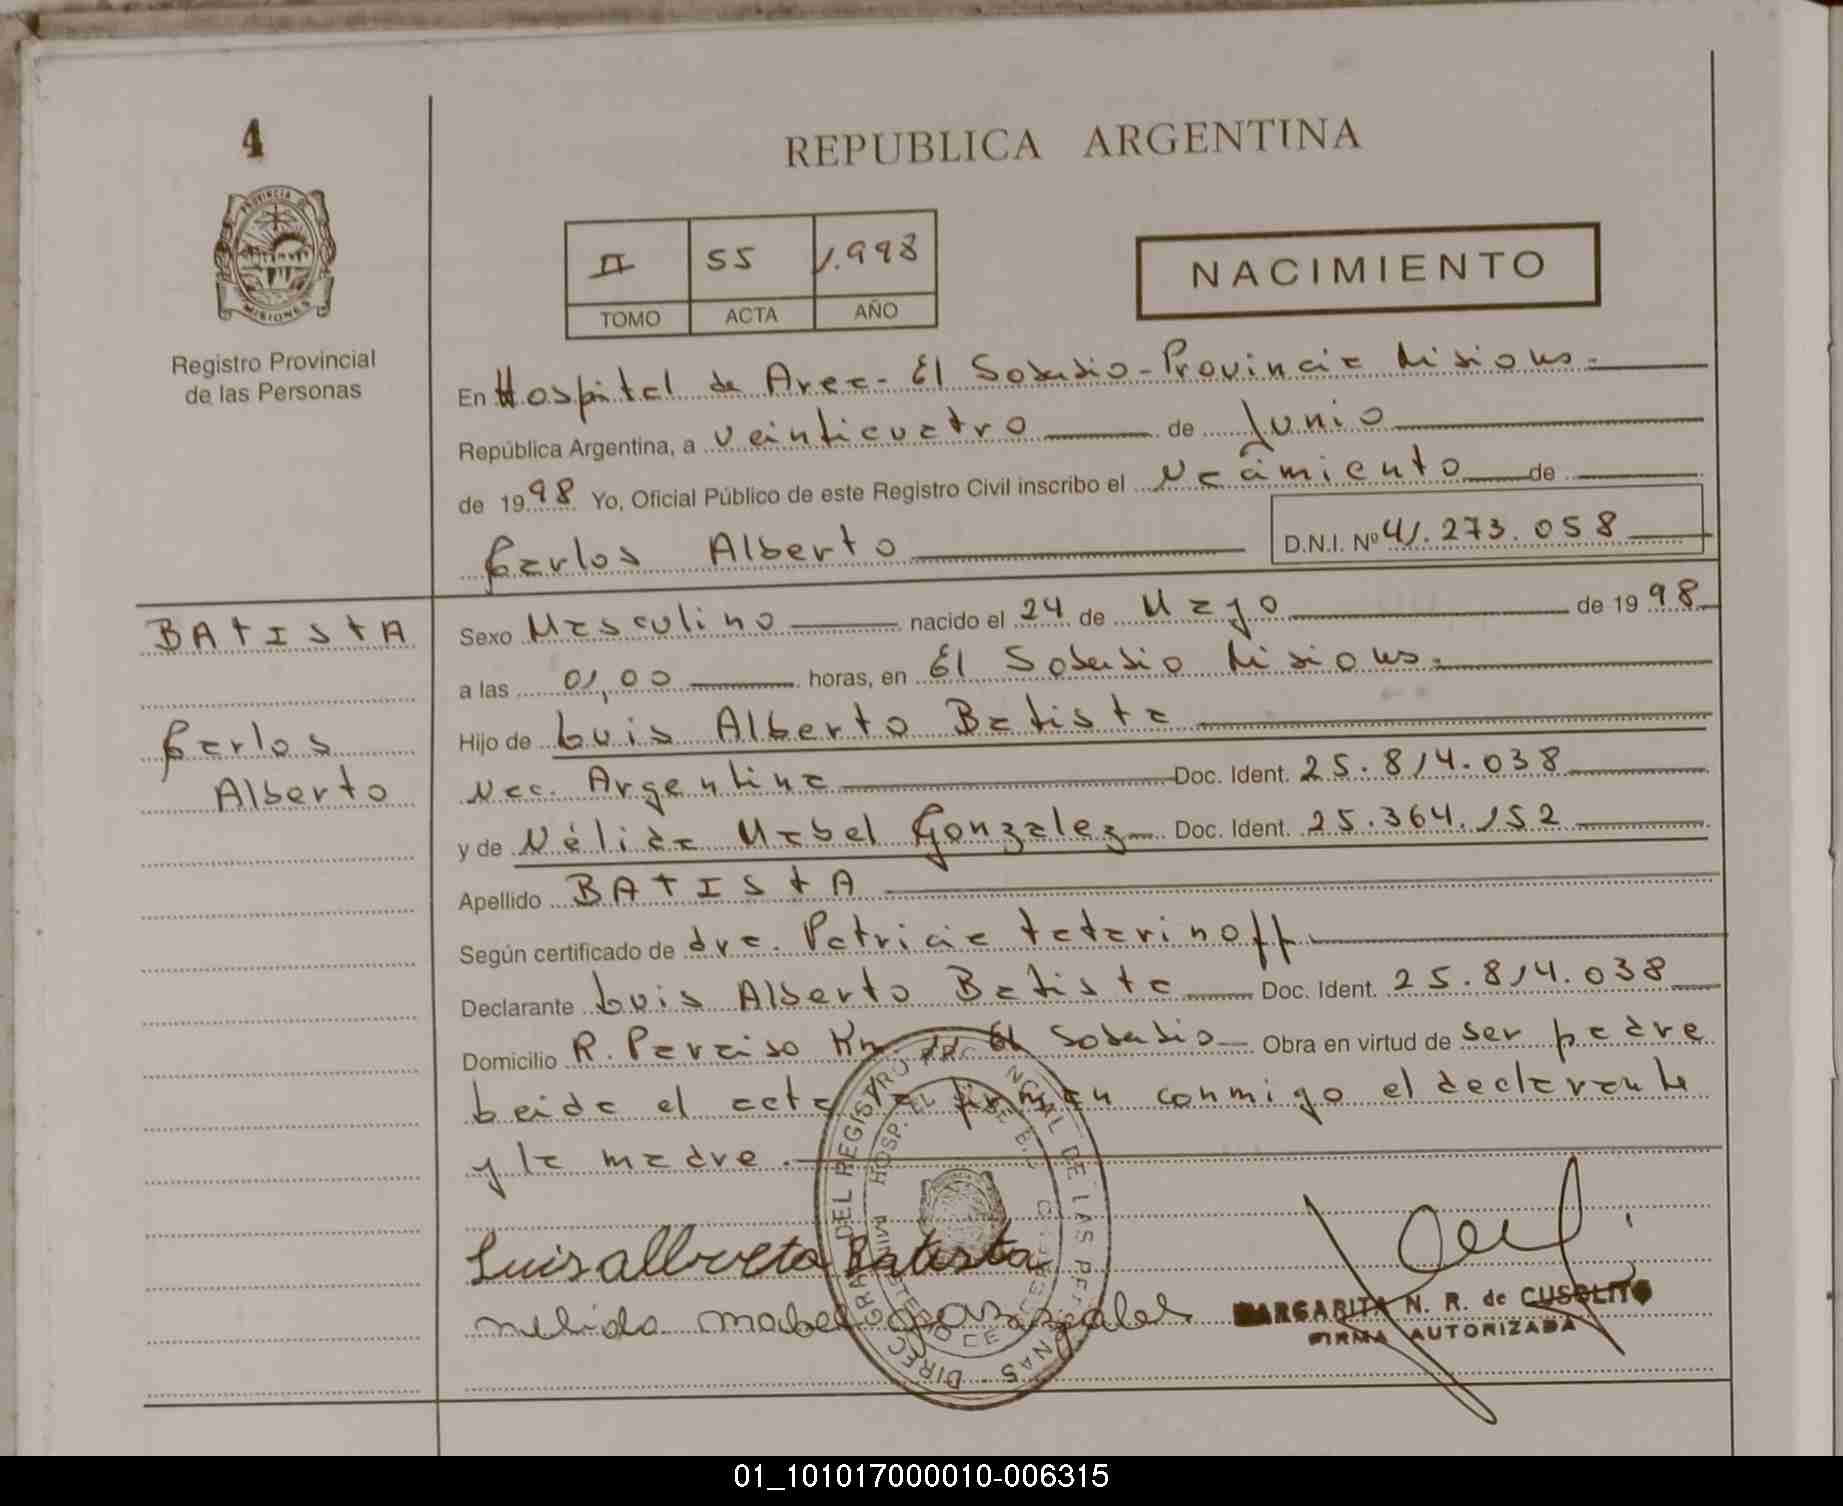 4
REPUBLICA ARGENTINA
PROVINCIA DE
MISIONES
Registro Provincial
de las Personas
II 55 1.998
TOMO ACTA AÑO
NACIMIENTO
En Hospital de Area - El Soberbio - Provincia Misiones.-
República Argentina, a veinticuatro de Junio
de 1998 Yo, Oficial Público de este Registro Civil inscribo el Nacimiento de
Carlos Alberto D.N.I. Nº 41.273.058
BATISTA
Carlos
Alberto
Sexo Masculino nacido el 24 de Mayo de 1998
a las 01,00 horas, en El Soberbio Misiones.-
Hijo de Luis Alberto Batista
Nac. Argentina Doc. Ident. 25.814.038
y de Nélida Mabel Gonzalez Doc. Ident. 25.364.152
Apellido BATISTA
Según certificado de dra. Patricia Tatarinoff
Declarante Luis Alberto Batista Doc. Ident. 25.814.038
Domicilio R. Paraiso Km El Soberbio Obra en virtud de ser padre
Leida el acta la firman conmigo el declarante
y la madre.-
Luis alberto Batista
nelida mabel gonzales
MARGARITA N. R. de CUSOLITO
FIRMA AUTORIZADA
DEL REGISTRO DE LAS PERSONAS
HOSP. EL
01_101017000010-006315